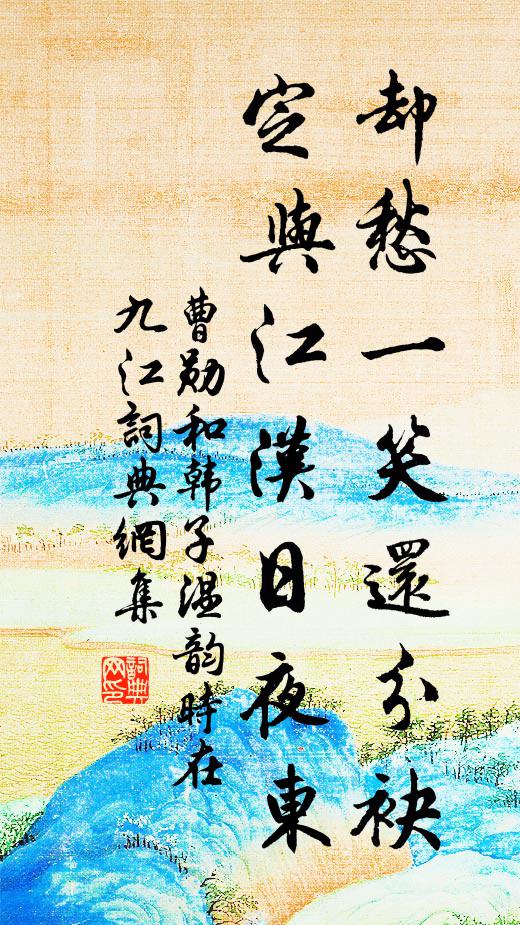 却愁一笑還分袂
定與江漢日夜東
曹勋和韩子温韵時在
九江詞典網集
詞典
网印